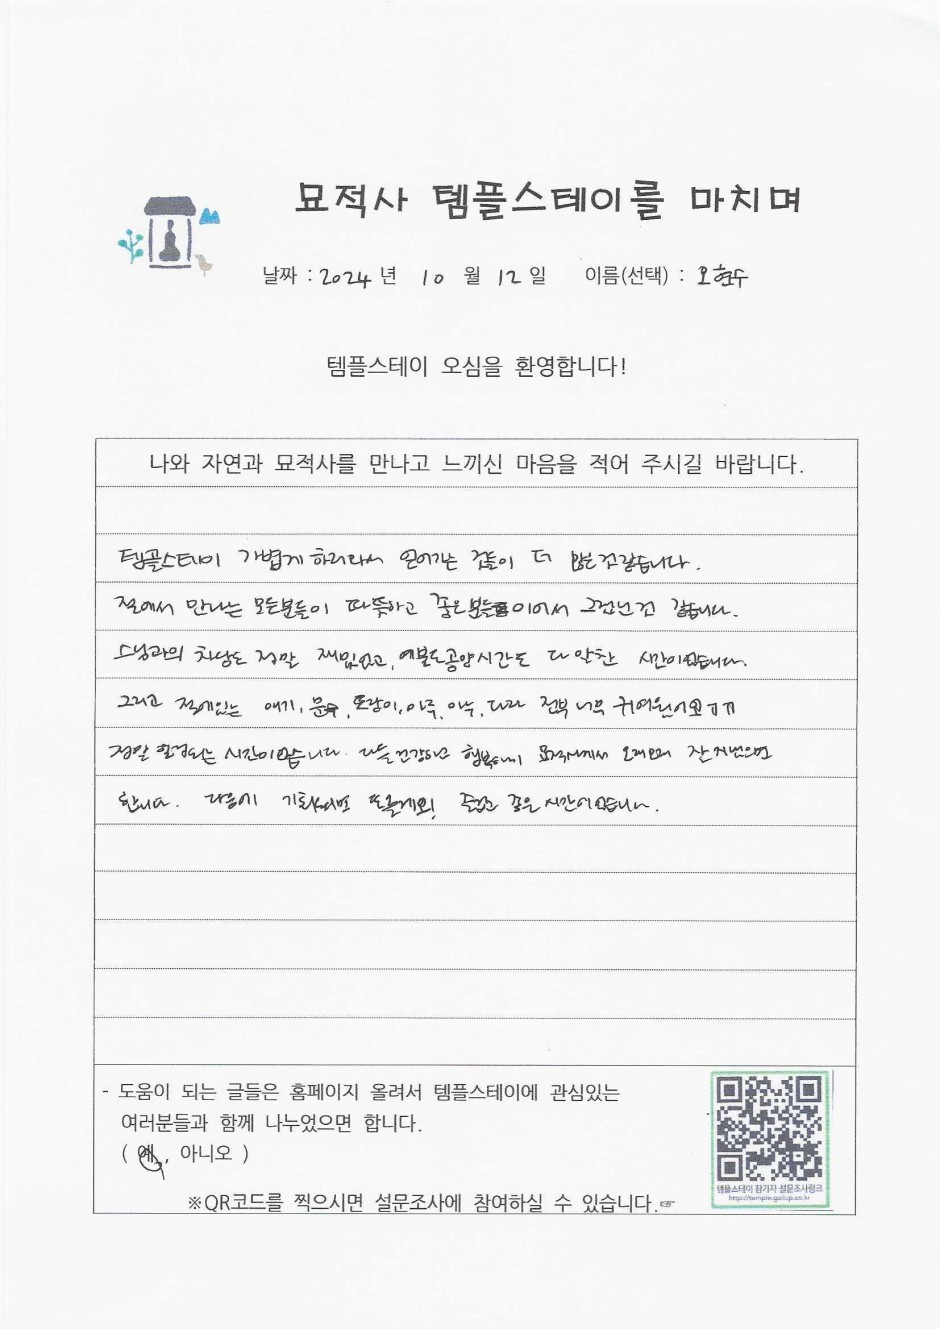 묘적사 템플스테이를 마치며
날짜 : 2024 년 10 월 12 일 이름(선택) : 오현수
템플스테이 오심을 환영합니다!
나와 자연과 묘적사를 만나고 느끼신 마음을 적어 주시길 바랍니다.
템플스테이 가볍게 하러와서 얻어가는 것들이 더 많은 것 같습니다.
절에서 만나는 모든분들이 따뜻하고 좋은분들이어서 그런건 같습니다.
스님과의 차담도 정말 재밌었고, 예불도 공양시간도 다 알찬 시간이었습니다.
그리고 절에있는 애기, 문수, 토랑이, 마루, 전부 너무 귀여웠어요ㅠㅠ
정말 힐링되는 시간이었습니다. 다들 건강하고 행복하게 묘적사에서 오래오래 잘 지냈으면
합니다. 다음에 기회되면 또올게요! 즐겁고 좋은 시간이었습니다.
- 도움이 되는 글들은 홈페이지 올려서 템플스테이에 관심있는
여러분들과 함께 나누었으면 합니다.
( 예, 아니오 )
템플스테이 참가자 설문조사링크
http://temple.gallup.co.kr
※QR코드를 찍으시면 설문조사에 참여하실 수 있습니다.☞